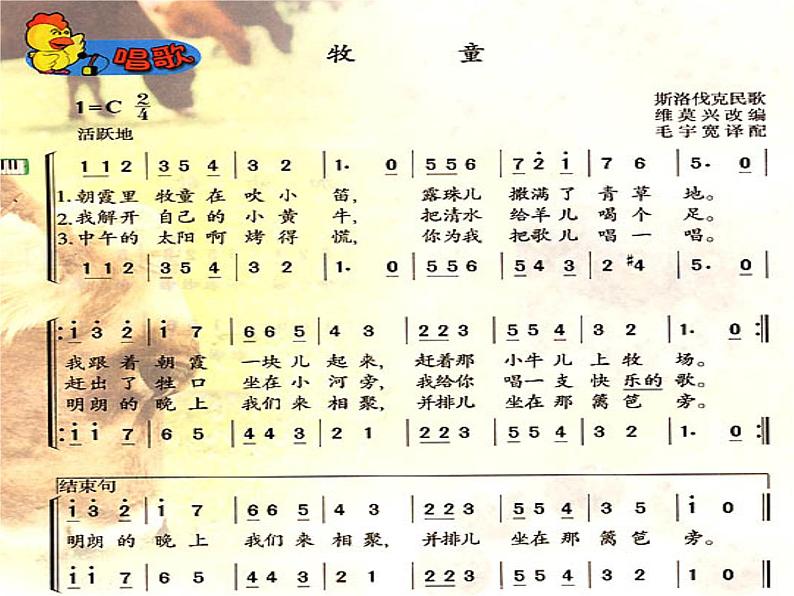 唱歌
牧 童
1=C 2/4
斯洛伐克民歌
维莫兴改编
毛宇宽译配
活跃地
1 1 2 | 3 5 4 | 3 2 3 2 | 1· 0 | 5 5 6 | 7 2 1 | 7 6 | 5· 0 |
1. 朝霞里 牧童在 吹小笛, 露珠儿 撒满了 青草地。
2. 我解开 自己的 小黄牛, 把清水 给羊儿 喝个足。
3. 中午的 太阳啊 烤得慌, 你为我 把歌儿 唱一唱。
1 1 2 | 3 5 4 | 3 2 3 2 | 1· 0 | 5 5 6 | 5 4 3 | 2 #4 | 5· 0 |
1 3 2 | 1 7 | 6 6 5 | 4 3 | 2 2 3 | 5 5 4 | 3 2 | 1· 0
我跟着 朝霞 一块儿 起来, 赶着那 小牛儿 上牧场。
赶出了 牲口 坐在小 河旁, 我给你 唱一支 快乐的歌。
明朗的 晚上 我们来 相聚, 并排儿 坐在那 篱笆旁。
1 1 7 | 6 5 | 4 4 3 | 2 1 | 2 2 3 | 5 5 4 | 3 2 | 1· 0
结束句
1 3 2 | 1 7 | 6 6 5 | 4 3 | 2 2 3 | 5 5 4 | 3 5 | 1 0
明朗的 晚上 我们来 相聚, 并排儿 坐在那 篱笆旁。
1 1 7 | 6 5 | 4 4 3 | 2 1 | 2 2 3 | 5 5 4 | 3 2 | 1 0